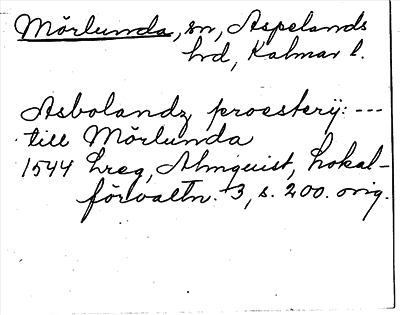 Mörlunda, sn, Aspelands
hd, Kalmar l.
Asbolandz proesterij: ---
till Mörlunda
1544 Lreg, Almquist, Lokal-
förvaltn. 3, s. 200. orig.